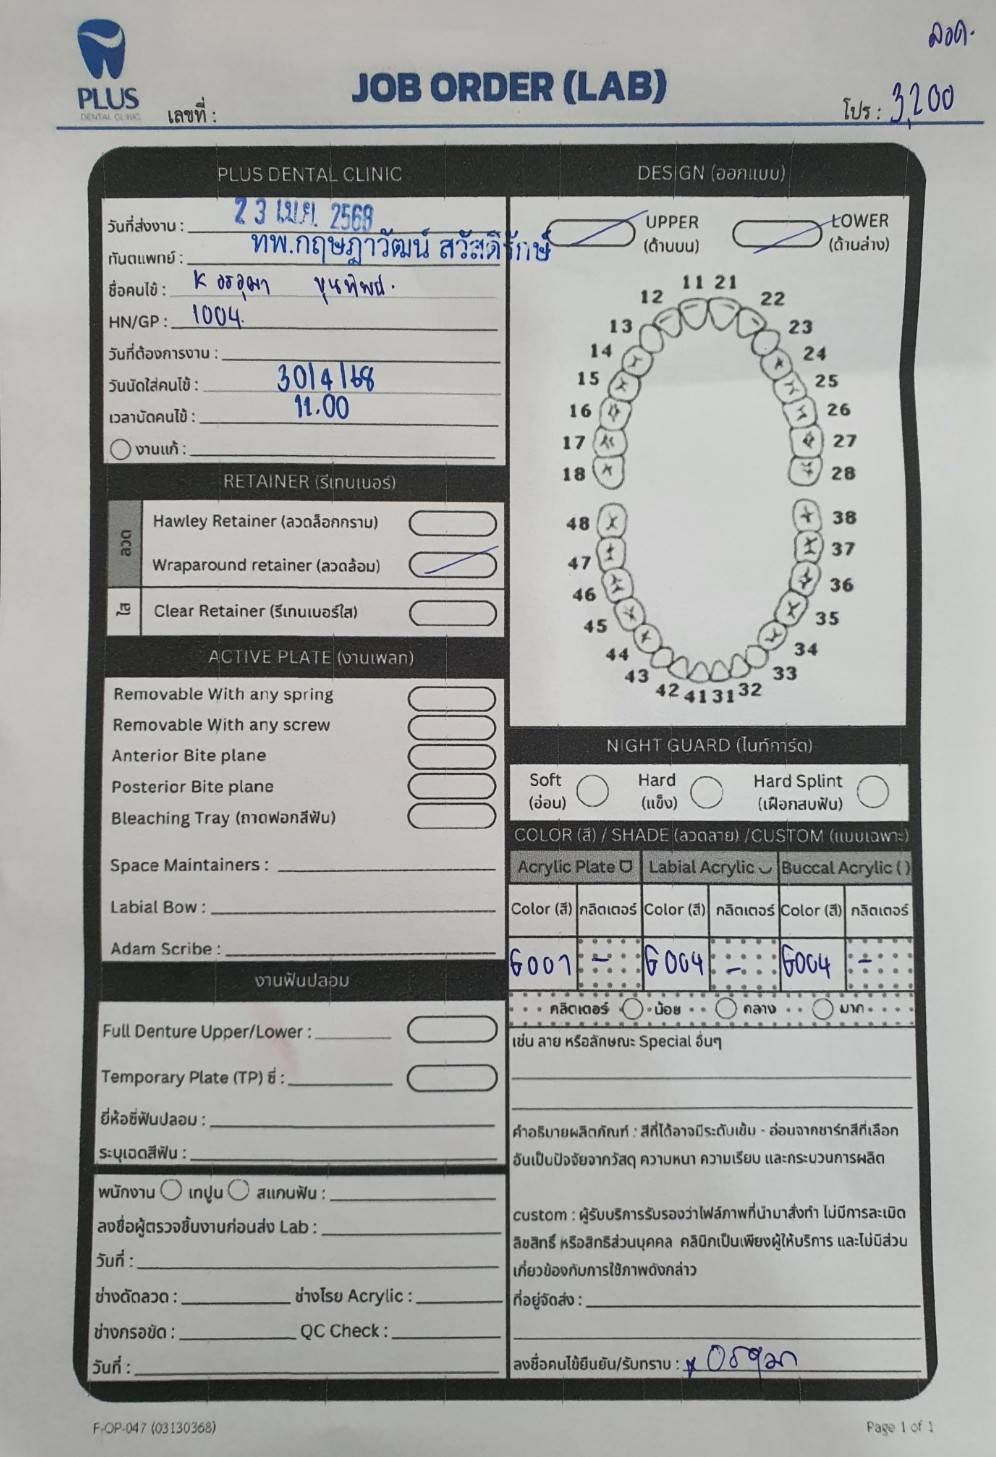 ลวด.
PLUS
DENTAL CLINIC
เลขที่ :
JOB ORDER (LAB)
โปร : 3,200
PLUS DENTAL CLINIC
วันที่ส่งงาน : 23 เม.ย. 2568
ทันตแพทย์ : ทพ.กฤษฎาวัฒน์ สวัสดิรักษ์
ชื่อคนไข้ : K อรอุมา
HN/GP : 1004.
วันที่ต้องการงาน :
วันนัดใส่คนไข้ : 30/4/68
เวลานัดคนไข้ : 11.00
งานแก้ :
RETAINER (รีเทนเนอร์)
ลวด
Hawley Retainer (ลวดล็อกกราม)
Wraparound retainer (ลวดล้อม)
ใส
Clear Retainer (รีเทนเนอร์ใส)
ACTIVE PLATE (งานเพลท)
Removable With any spring
Removable With any screw
Anterior Bite plane
Posterior Bite plane
Bleaching Tray (ถาดฟอกสีฟัน)
Space Maintainers :
Labial Bow :
Adam Scribe :
งานฟันปลอม
Full Denture Upper/Lower :
Temporary Plate (TP) ซี่ :
ยี่ห้อซี่ฟันปลอม :
ระบุเฉดสีฟัน :
พนักงาน เทปูน สแกนฟัน :
ลงชื่อผู้ตรวจชิ้นงานก่อนส่ง Lab :
วันที่ :
ช่างดัดลวด : ช่างโรย Acrylic :
ช่างกรอขัด : QC Check :
วันที่ :
DESIGN (ออกแบบ)
UPPER LOWER
(ด้านบน) (ด้านล่าง)
11 21
12 22
13 23
14 24
15 25
16 26
17 27
18 28
48 38
47 37
46 36
45 35
44 34
43 33
42 41 31 32
NIGHT GUARD (ไนท์การ์ด)
Soft Hard Hard Splint
(อ่อน) (แข็ง) (เฝือกสบฟัน)
COLOR (สี) / SHADE (ลวดลาย) /CUSTOM (แบบเฉพาะ)
Acrylic Plate Labial Acrylic Buccal Acrylic ( )
Color (สี) กลิตเตอร์ Color (สี) กลิตเตอร์ Color (สี) กลิตเตอร์
G001 - G004 - G004 -
กลิตเตอร์ น้อย กลาง มาก
เช่น ลาย หรือลักษณะ Special อื่นๆ
คำอธิบายผลิตภัณฑ์ : สีที่ได้อาจมีระดับเข้ม - อ่อนจากชาร์ทสีที่เลือก
อันเป็นปัจจัยจากวัสดุ ความหนา ความเรียบ และกระบวนการผลิต
custom : ผู้รับบริการรับรองว่าไฟล์ภาพที่นำมาสั่งทำ ไม่มีการละเมิด
ลิขสิทธิ์ หรือสิทธิส่วนบุคคล คลินิกเป็นเพียงผู้ให้บริการ และไม่มีส่วน
เกี่ยวข้องกับการใช้ภาพดังกล่าว
ที่อยู่จัดส่ง :
ลงชื่อคนไข้ยืนยัน/รับทราบ : x อรอุมา
F-OP-047 (03130368)
Page 1 of 1